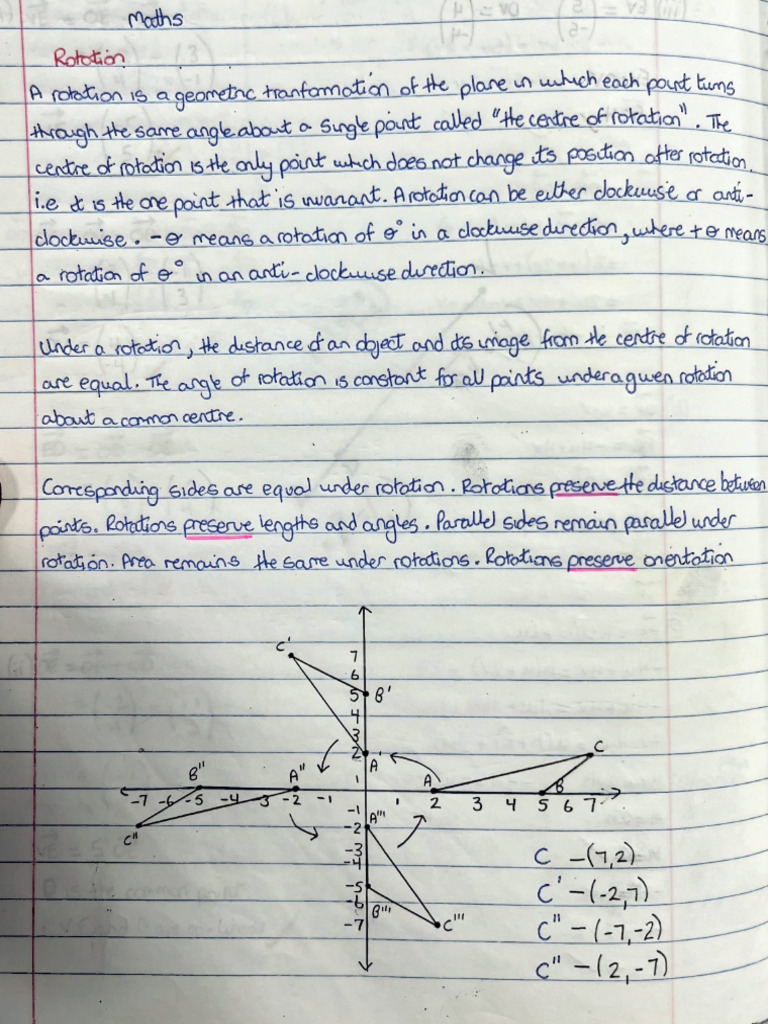 Maths
Rotation
A rotation is a geometric tranformation of the plane in which each point turns
through the same angle about a single point called "the centre of rotation". The
centre of rotation is the only point which does not change its position after rotation.
i.e it is the one point that is invariant. A rotation can be either clockwise or anti-
clockwise. -θ means a rotation of θ° in a clockwise direction, where +θ means
a rotation of θ° in an anti-clockwise direction.
Under a rotation, the distance of an object and its image from the centre of rotation
are equal. The angle of rotation is constant for all points under a given rotation
about a common centre.
Corresponding sides are equal under rotation. Rotations preserve the distance between
points. Rotations preserve lengths and angles. Parallel sides remain parallel under
rotation. Area remains the same under rotations. Rotations preserve orientation
C'
7
6
5 B'
4
3
2 A'
C
B'' A'' 1 A B
-7 -6 -5 -4 -3 -2 -1 1 2 3 4 5 6 7
C''
-1
-2 A'''
-3
-4
-5
-6 B'''
-7 C'''
C - (7,2)
C' - (-2,7)
C'' - (-7,-2)
C'' - (2,-7)